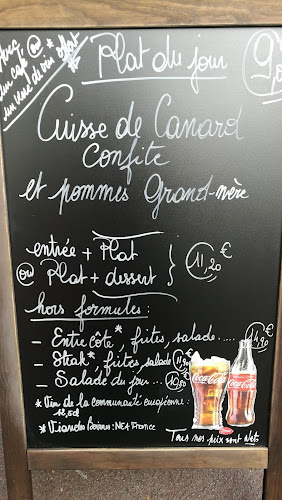 un café ou
un verre de vin offert
Plat du jour
9,
Cuisse de Canard
Confite
et pommes Grand-mère
entrée + Plat
ou Plat + dessert
11,20€
hors formules :
- Entrecôte*, frites, salade..... 14,90€
- Steak*, frites, salade 11,90
- Salade du jour ... 10,80
Coca-Cola
Coca-Cola
*Vin de la communauté européenne :
12,5cl
*Viandes Bovines : NEA France
Tous nos prix sont Nets